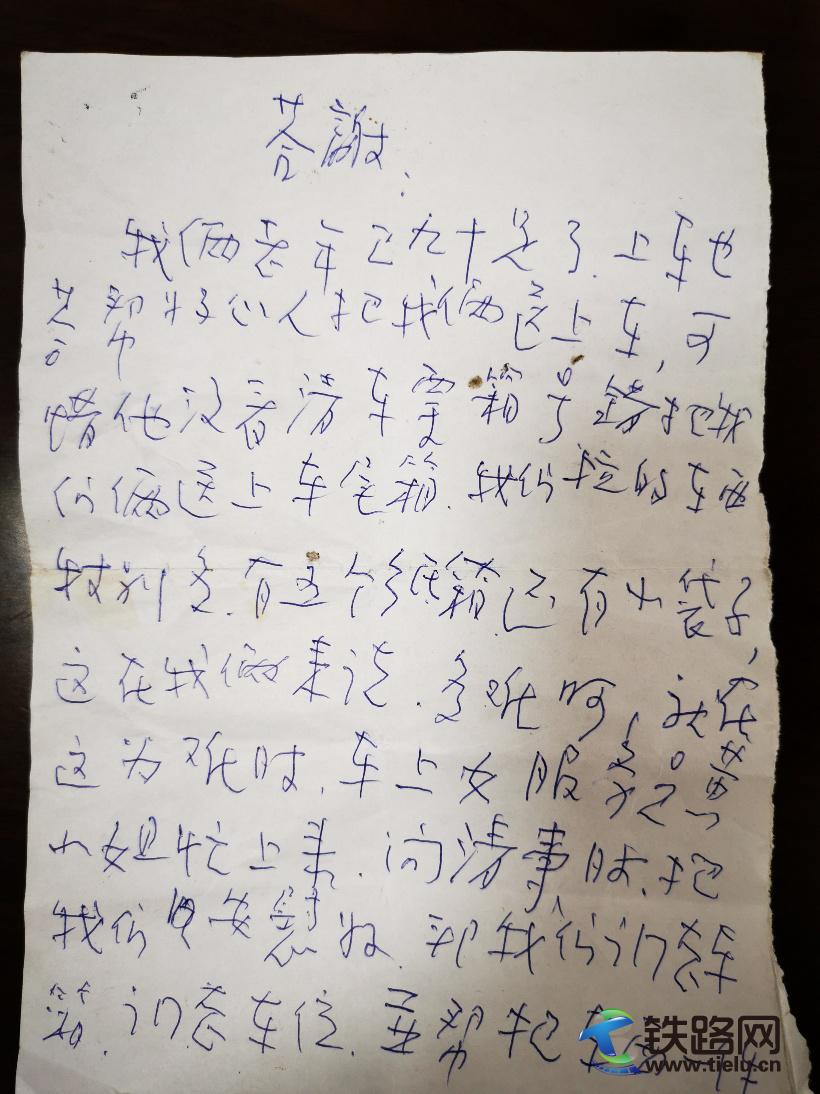 答謝:
我俩老年已九十足了.上车也
苦 帮好心人把我俩送上车,可
惜他没看清车票箱号 错把我
们俩送上车尾箱.我们拉的东西
特别多.有五个纸箱.还有小袋子,
这在我俩来说.多难呵,就在
这为难时.车上女服务员黄
小姐忙上来.问清事时.把
我们 安慰好.帮我们 车
箱. 车位.并帮把东西
铁路网
www.tielu.cn